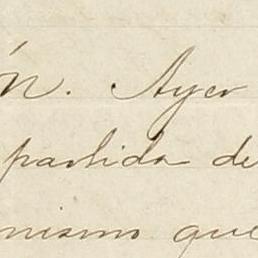 ń. Ayer
partida de
mismo que